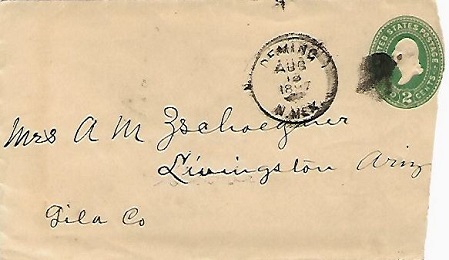 DEMING
AUG
13
1897
N. MEX.
UNITED STATES POSTAGE
2 CENTS
Mrs A M Zschoegner
Livingston Ariz
Gila Co